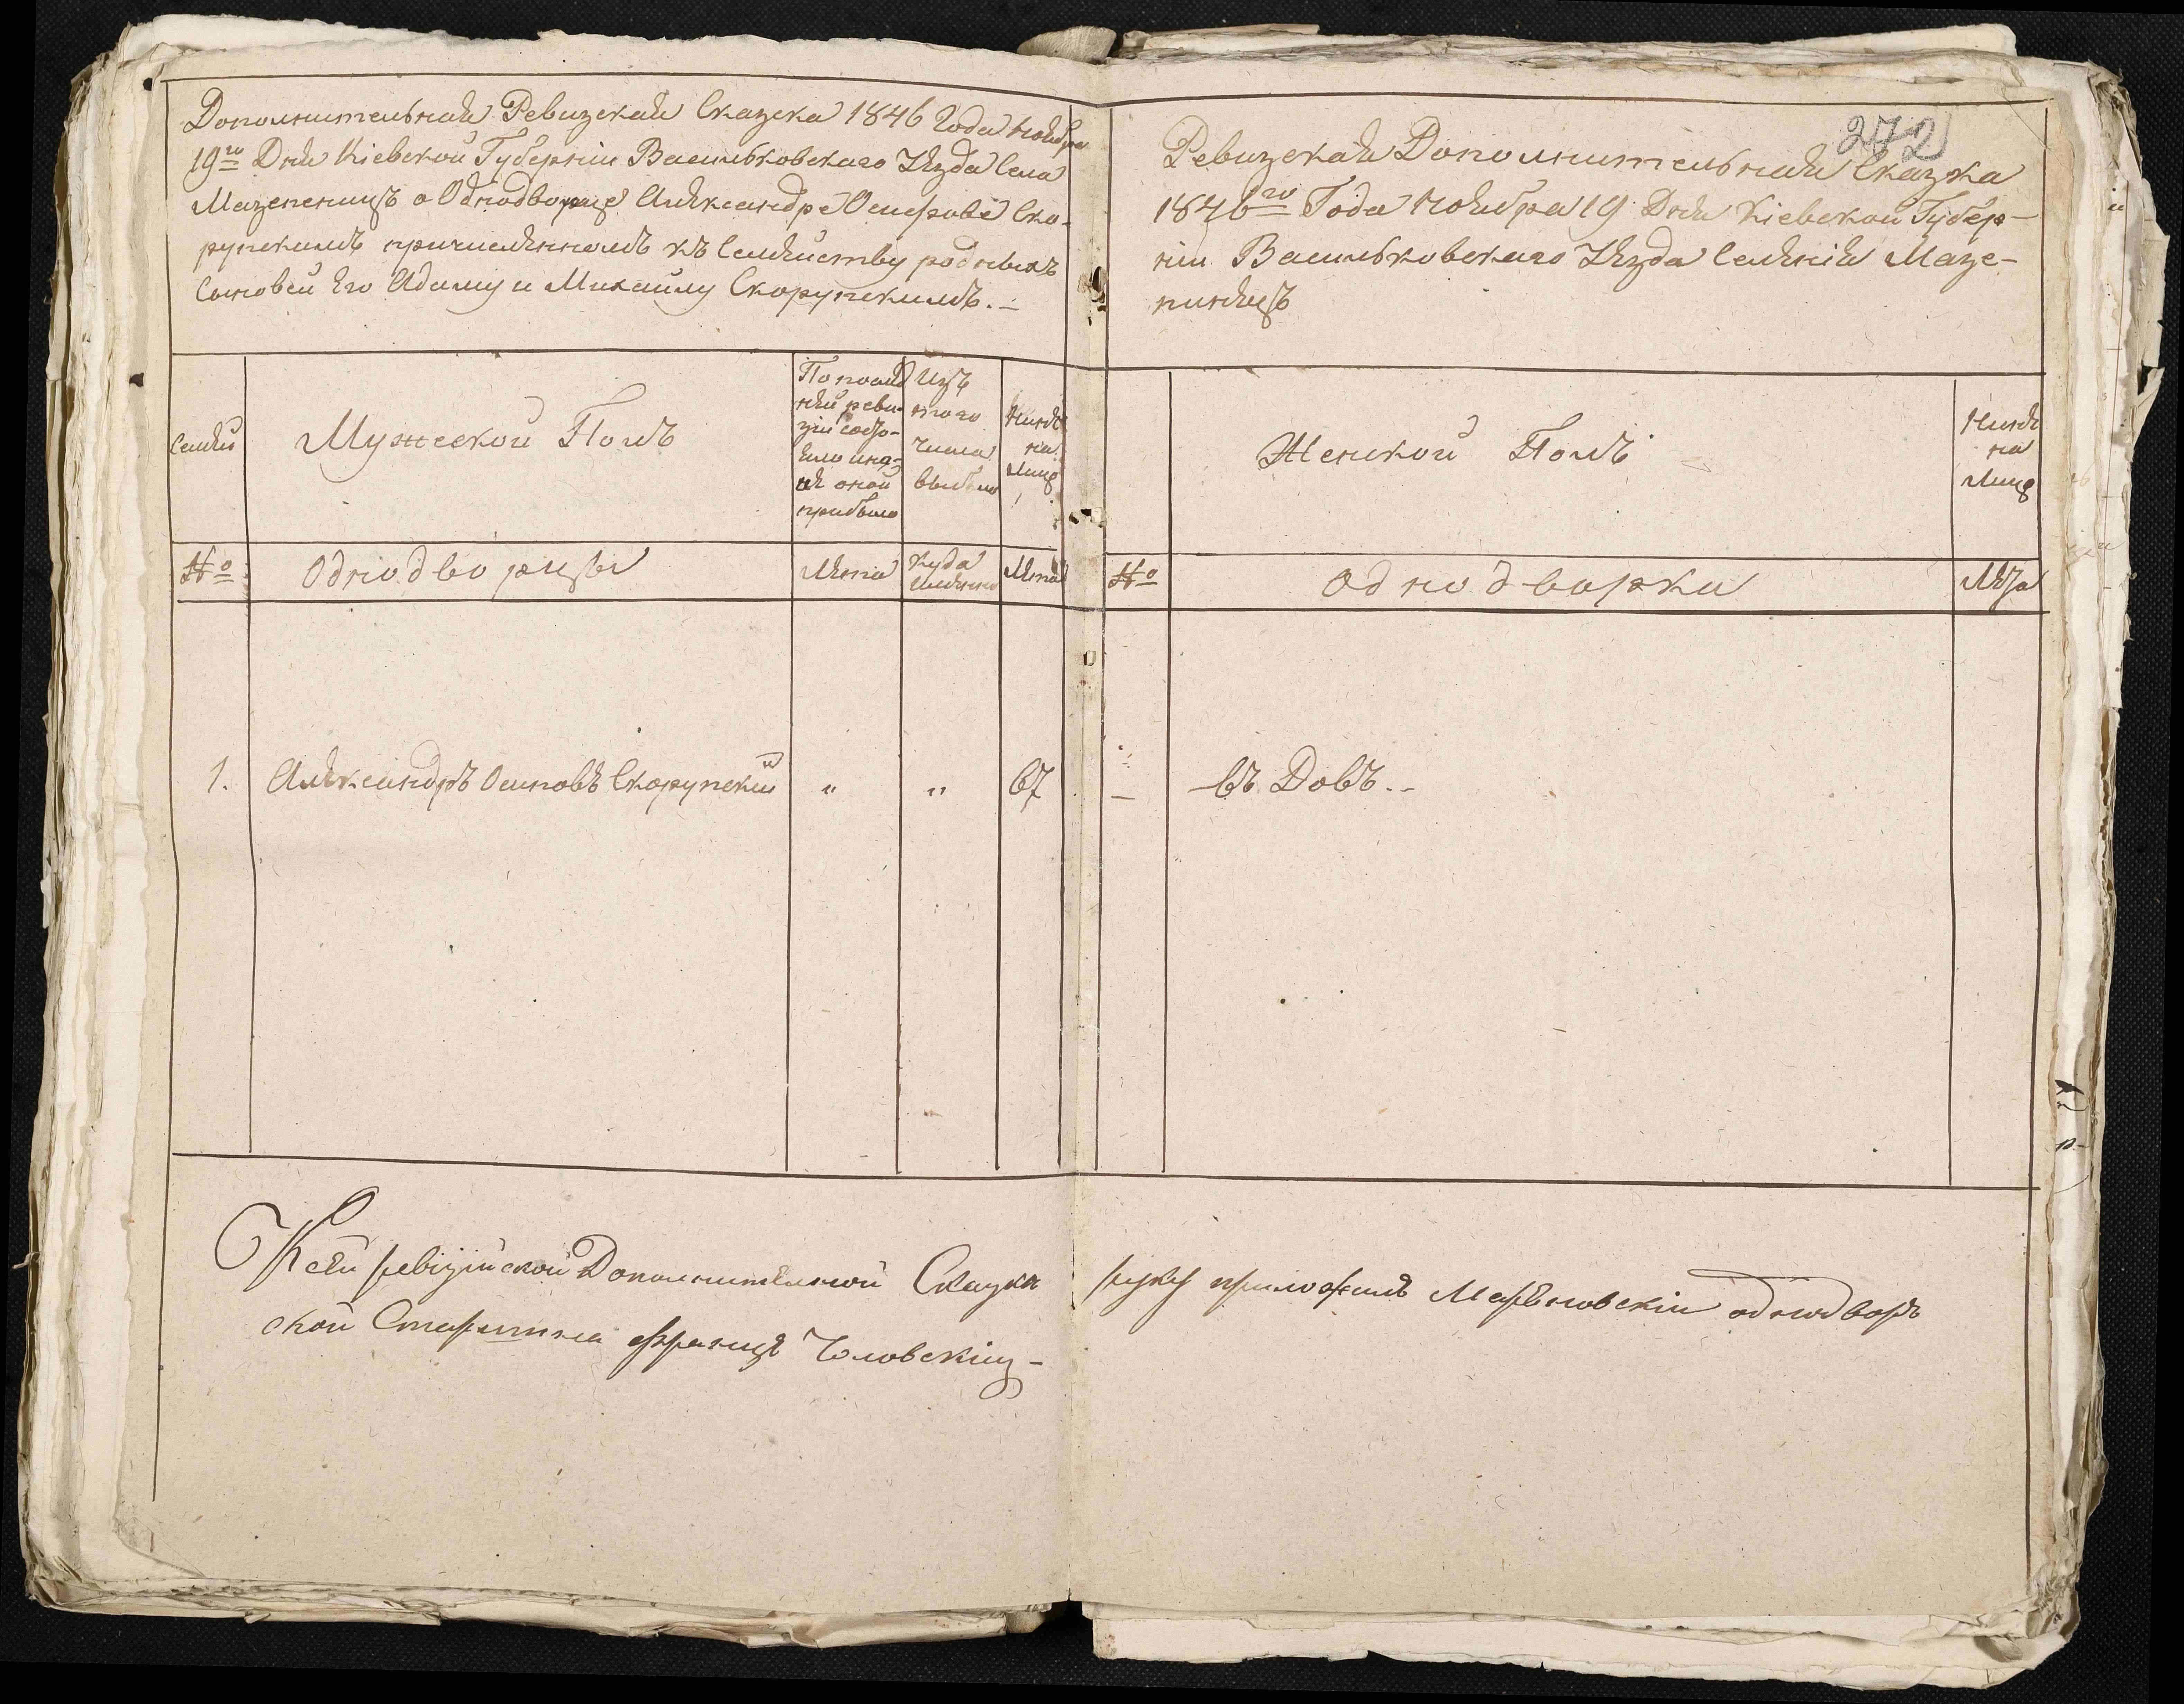 Дополнительная Ревизская Сказска 1846 Года ноября
19го Дня Кіевской Губерніи Васильковскаго Уезда Села
Мазепенцъ о Однодворце Александре Осиפове Ско-
рупскимъ причисленномъ къ Семейству родныхъ
Сыновей Его Адаму и Михаилу Скорупскимъ. –
272
Ревизская Дополнительная Сказка
1846го Года ноября 19 Дня Кіевской Губер-
ніи Васильковскаго Уезда Селенія Мазе-
пинецъ
Семьи
Мужеской Полъ
По послед
ней реви-
зіи состо-
яло
ле оной
прибыло
Изъ
того
числа
выбыло
Ныне
на
Лице
Женской Полъ
Ныне
на
Лице
№
Однодворцы
Лета
Куда
именно
Лета
№
Однодворки
Лета
1.
Александръ Осиповъ Скорупский
"
"
67
—
въ Довъ. --
К сей ревізійской Дополнительной Сказки руку приложилъ Марьяновскій однодворъ
ской Старшина Францъ